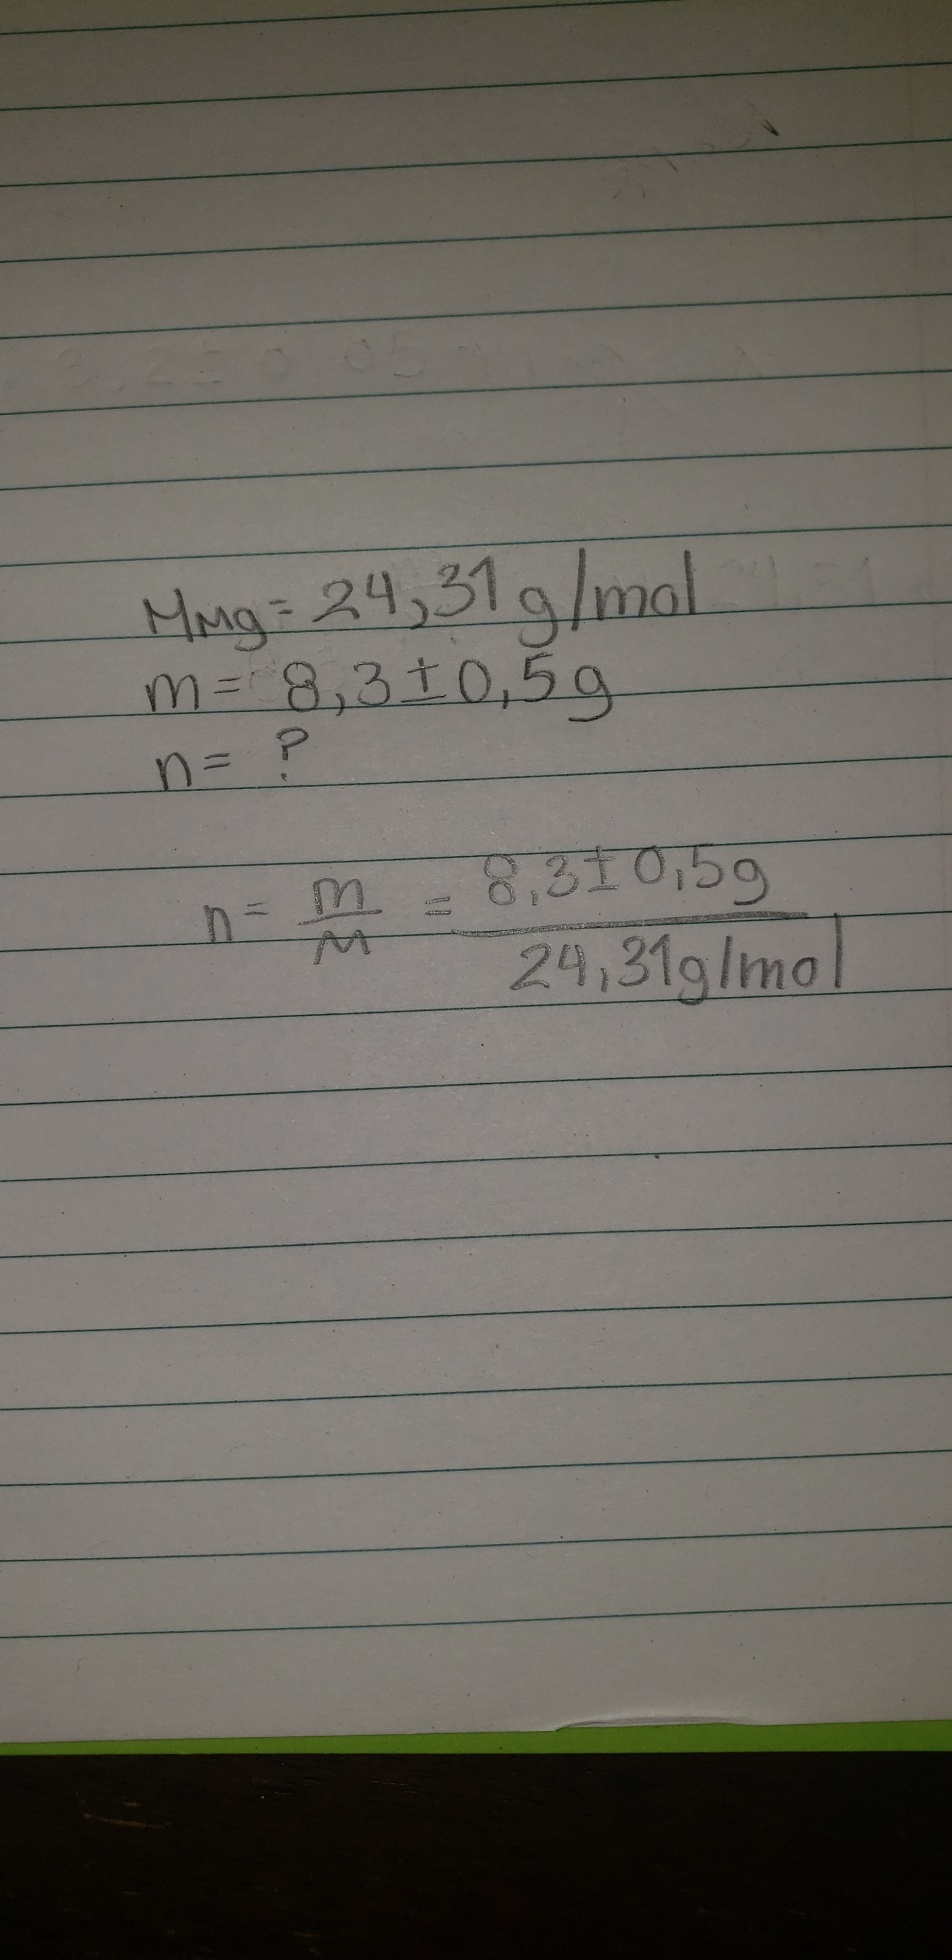 M_Mg = 24,31 g/mol
m = 8,3 ± 0,5 g
n = ?
n = m/M = 8,3 ± 0,5 g / 24,31 g/mol